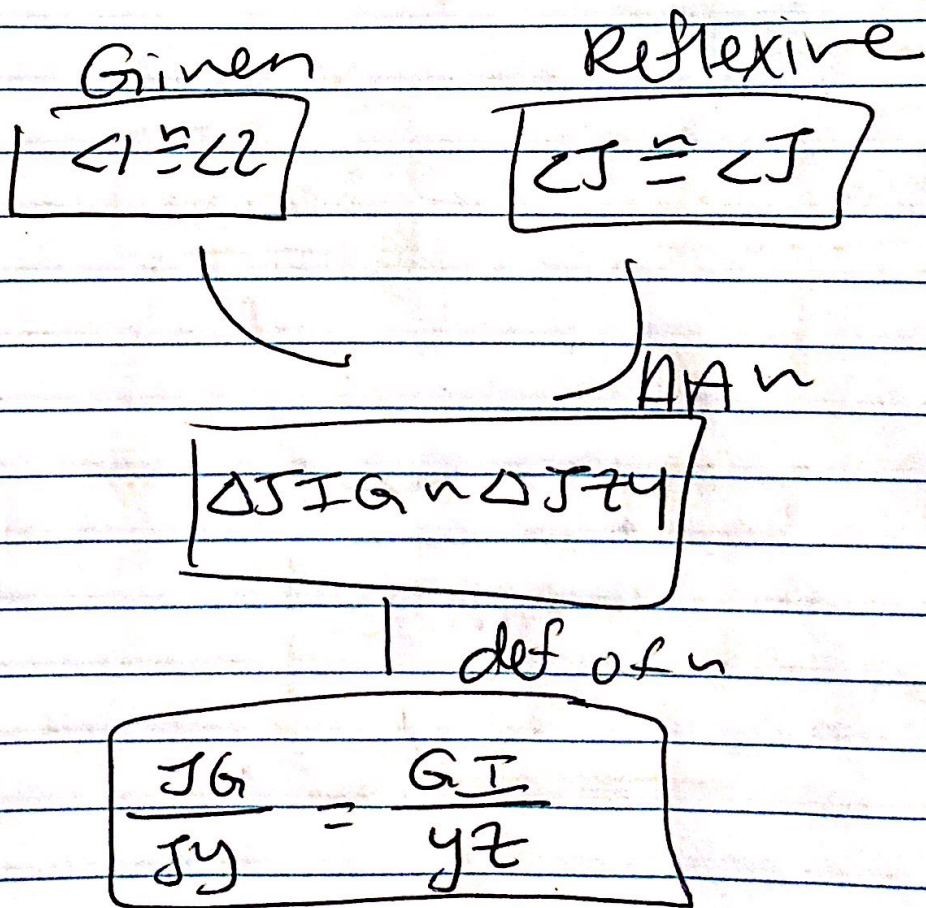 Given Reflexive
∠1 ≅ ∠2 ∠J ≅ ∠J
AA ~
△JIG ~ △JZY
def of ~
JG/JY = GI/YZ